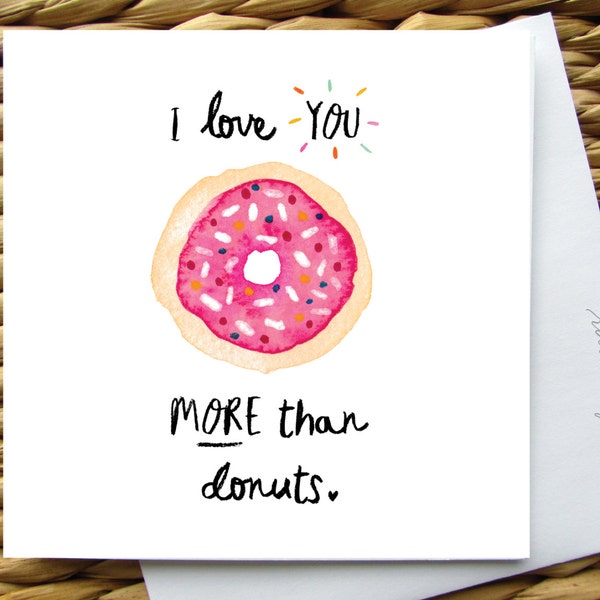 I love YOU
MORE than
donuts.